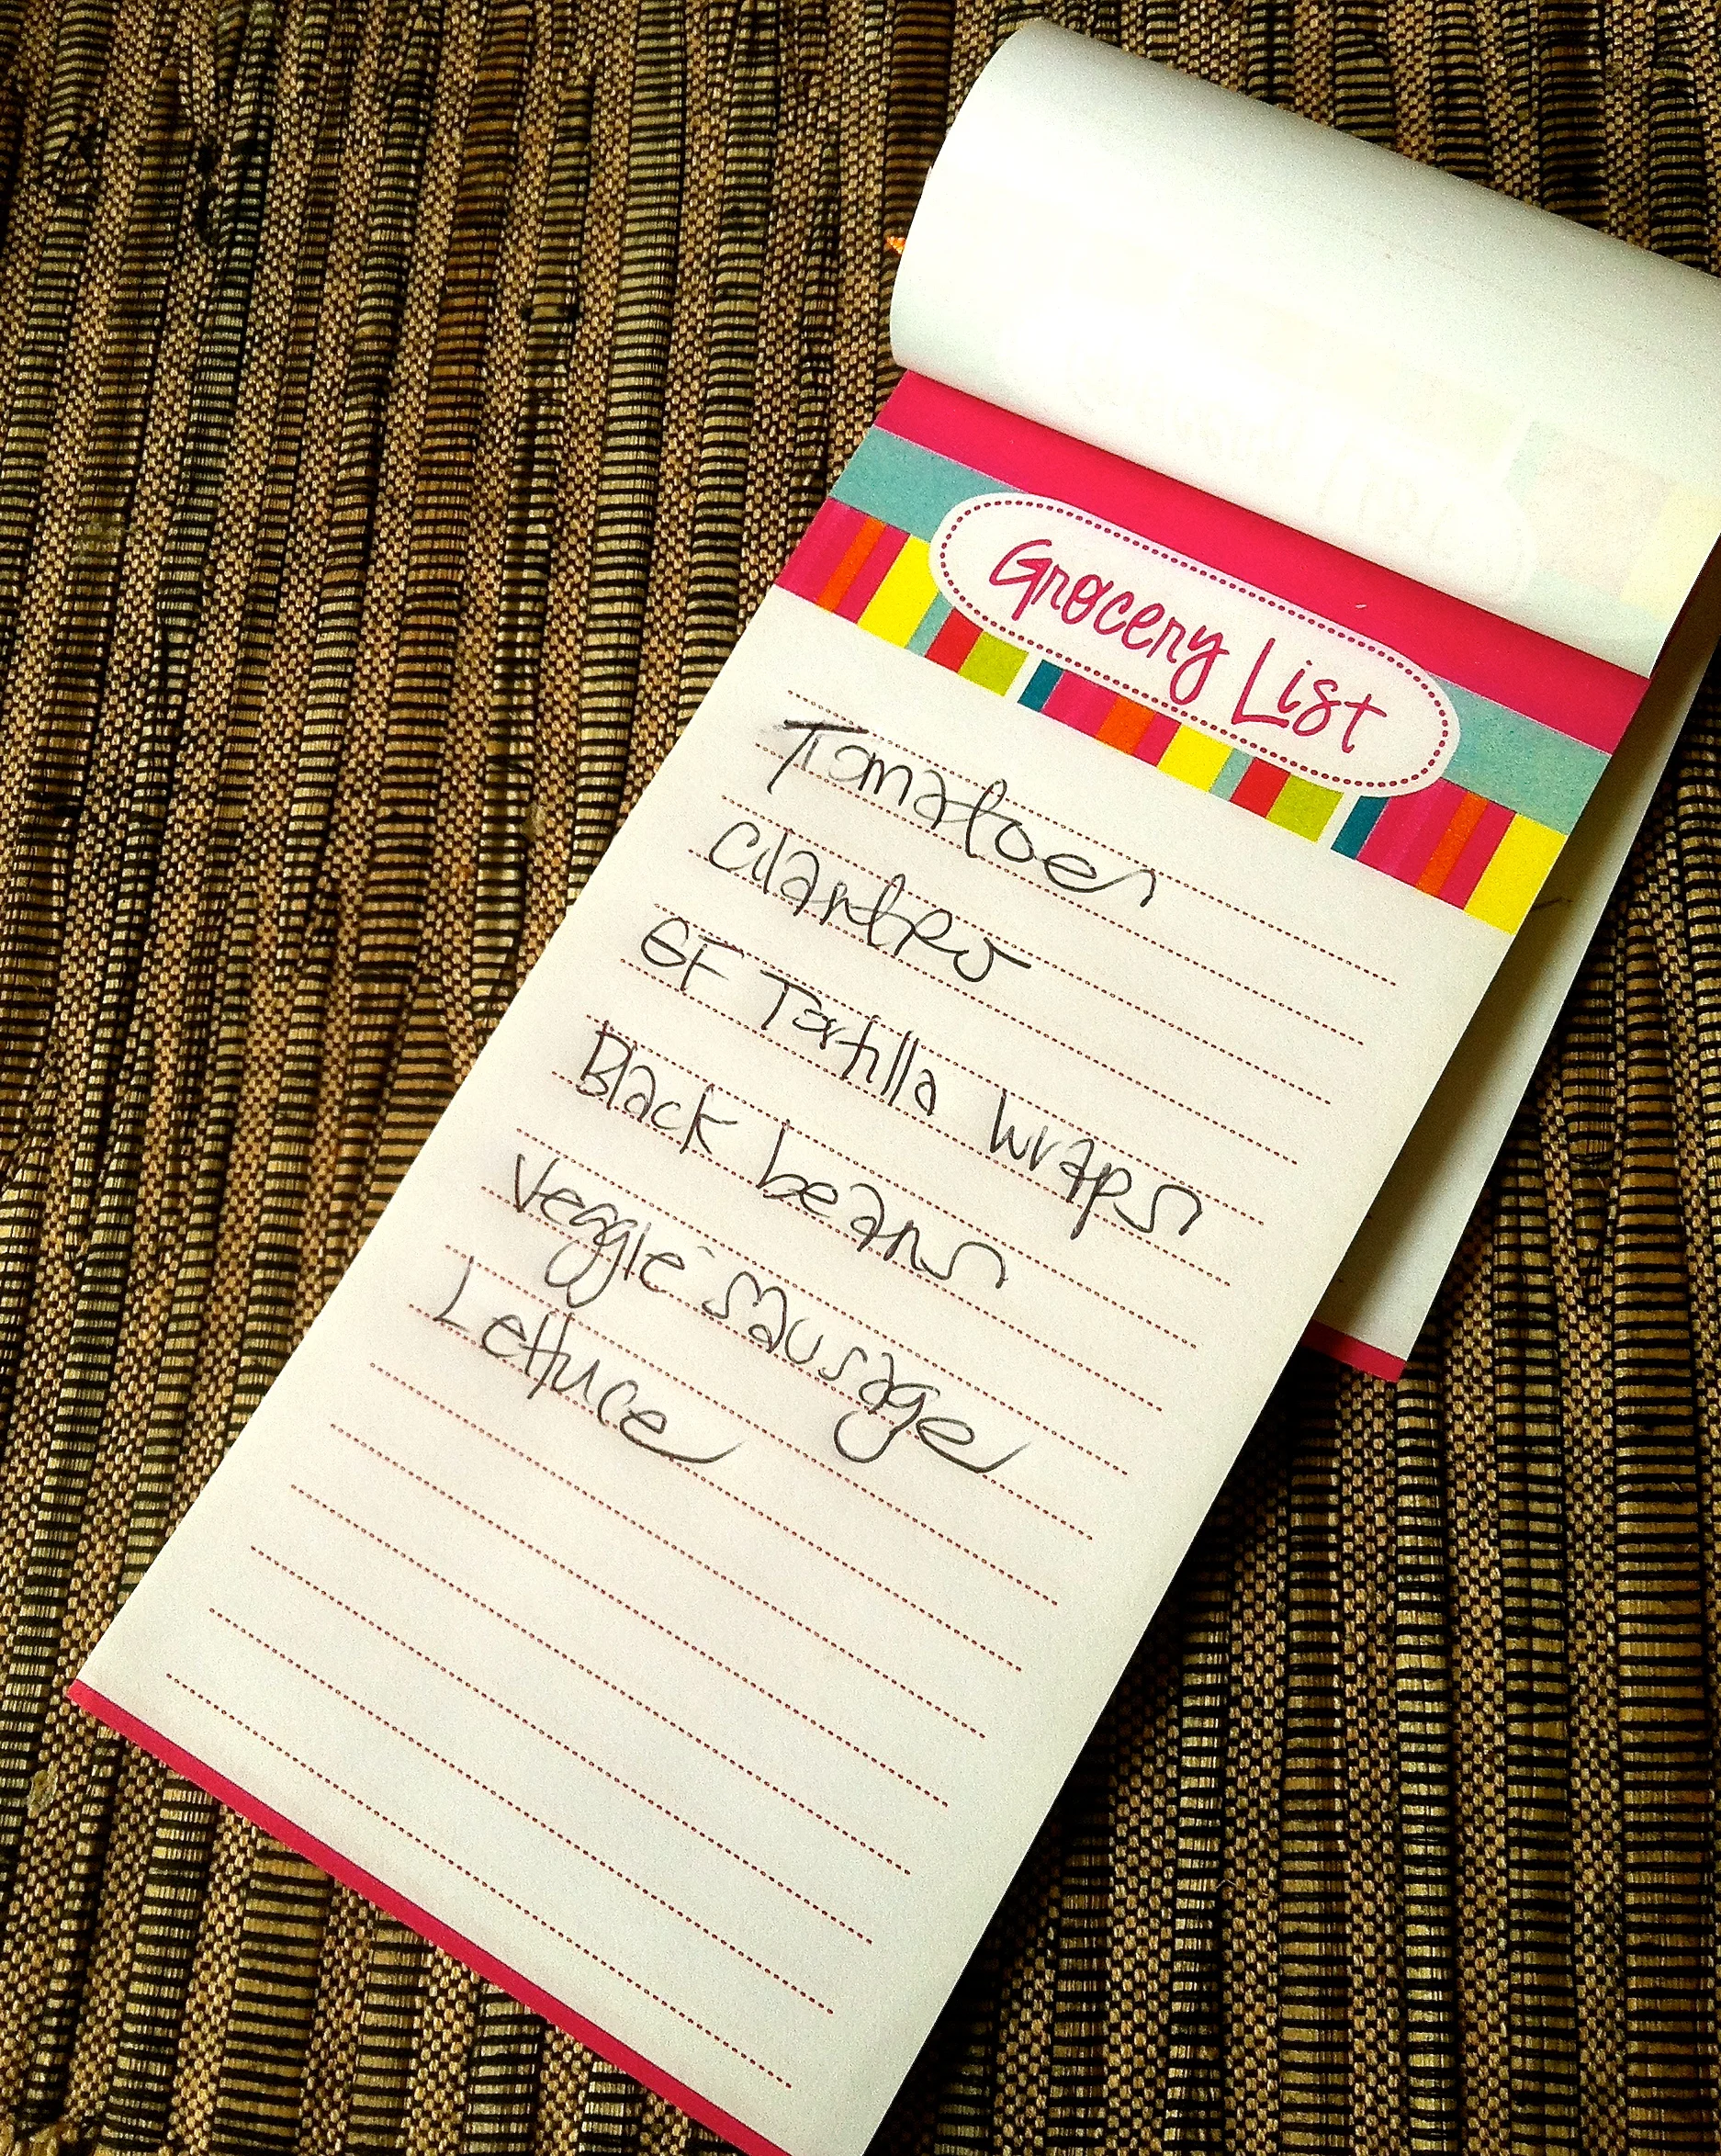 Grocery List
Tomatoes
Cilantro
GF Tortilla wraps
Black beans
Veggie sausage
Lettuce